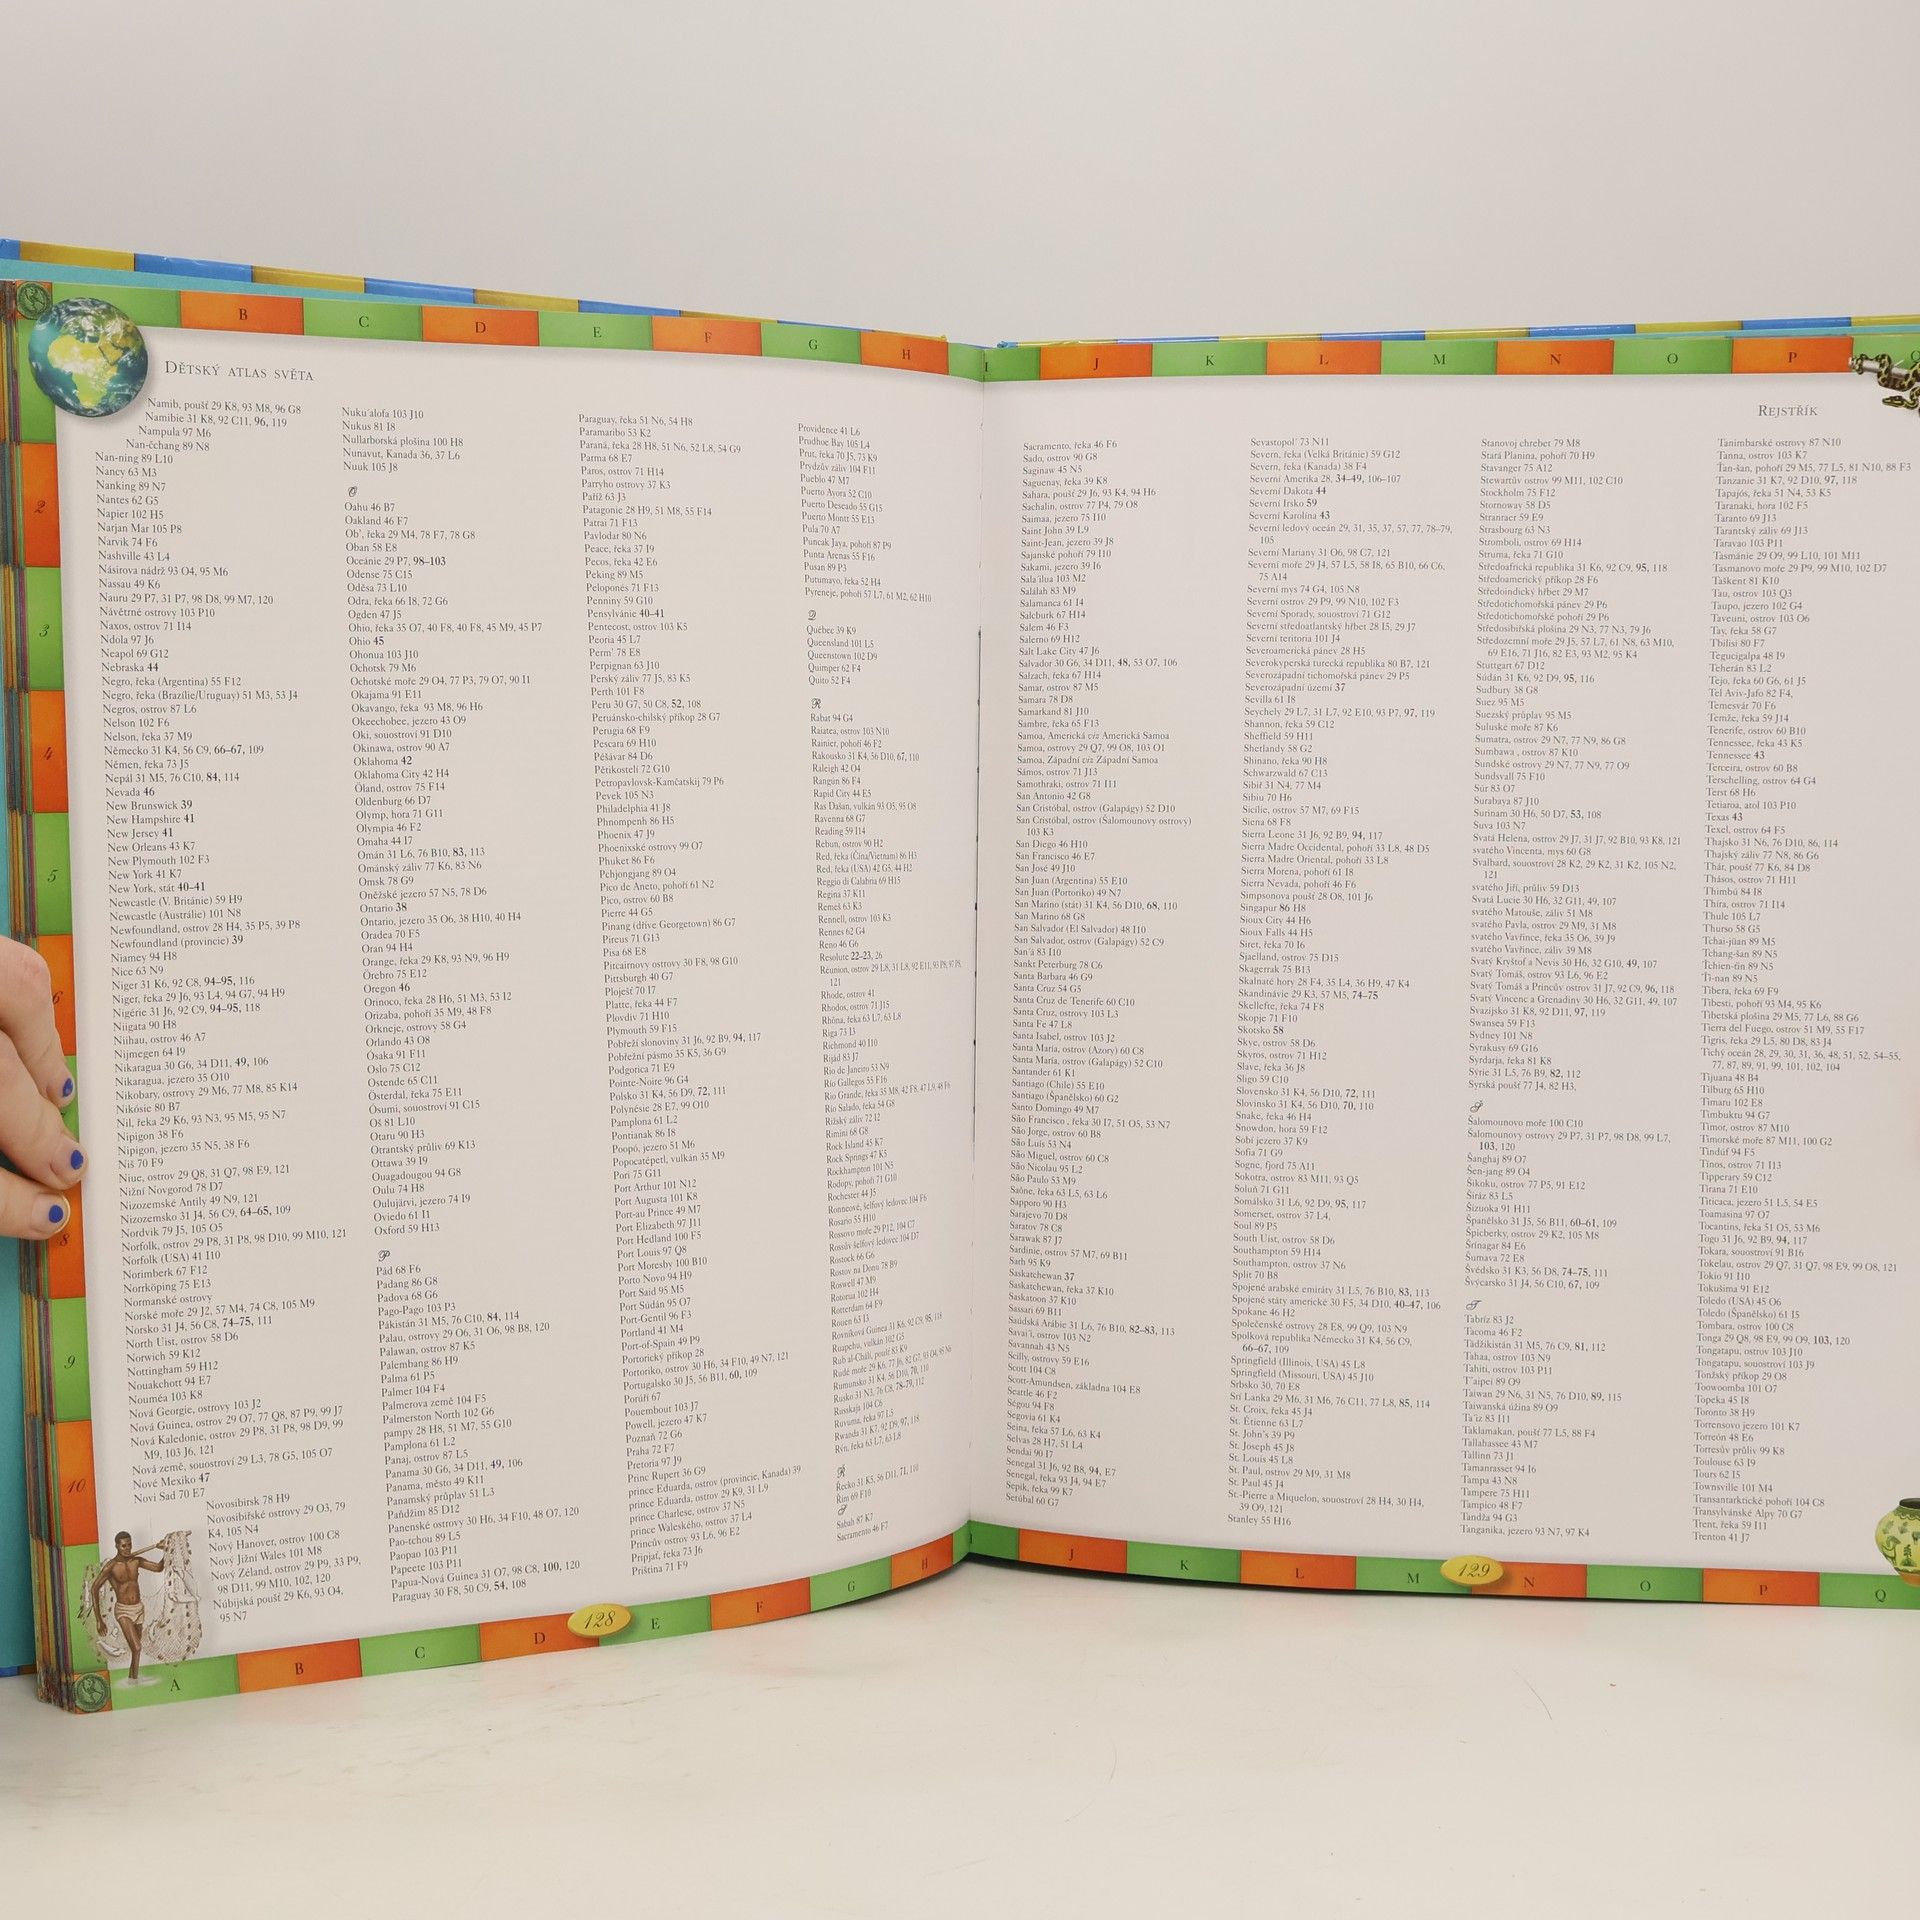 B C D E F G H I
DĚTSKÝ ATLAS SVĚTA
Namib, poušť 29 K8, 93 M8, 96 G8
Namibie 31 K8, 92 C11, 96, 119
Nampula 97 M6
Nan-čchang 89 N8
Nan-ning 89 L10
Nancy 63 M3
Nanking 89 N7
Nantes 62 G5
Napier 102 H5
Narjan Mar 105 P8
Narvik 74 F6
Nashville 43 L4
Násirova nádrž 93 O4, 95 M6
Nassau 49 K6
Nauru 29 P7, 31 P7, 98 D8, 99 M7, 120
Návětrné ostrovy 103 P10
Naxos, ostrov 71 I14
Ndola 97 J6
Neapol 69 G12
Nebraska 44
Negro, řeka (Argentina) 55 F12
Negro, řeka (Brazílie/Uruguay) 51 M3, 53 J4
Negros, ostrov 87 L6
Nelson 102 F6
Nelson, řeka 37 M9
Německo 31 K4, 56 C9, 66–67, 109
Němen, řeka 73 J5
Nepál 31 M5, 76 C10, 84, 114
Nevada 46
New Brunswick 39
New Hampshire 41
New Jersey 41
New Orleans 43 K7
New Plymouth 102 F3
New York 41 K7
New York, stát 40–41
Newcastle (V. Británie) 59 H9
Newcastle (Austrálie) 101 N8
Newfoundland, ostrov 28 H4, 35 P5, 39 P8
Newfoundland (provincie) 39
Niamey 94 H8
Nice 63 N9
Niger 31 K6, 92 C8, 94–95, 116
Niger, řeka 29 J6, 93 L4, 94 G7, 94 H9
Nigérie 31 J6, 92 C9, 94–95, 118
Niigata 90 H8
Niihau, ostrov 46 A7
Nijmegen 64 I9
Nikaragua 30 G6, 34 D11, 49, 106
Nikaragua, jezero 35 O10
Nikobary, ostrovy 29 M6, 77 M8, 85 K14
Nikósie 80 B7
Nil, řeka 29 K6, 93 N3, 95 M5, 95 N7
Nipigon 38 F6
Nipigon, jezero 35 N5, 38 F6
Niš 70 F9
Niue, ostrov 29 Q8, 31 Q7, 98 E9, 121
Nižní Novgorod 78 D7
Nizozemské Antily 49 N9, 121
Nizozemsko 31 J4, 56 C9, 64–65, 109
Nordvik 79 J5, 105 O5
Norfolk, ostrov 29 P8, 31 P8, 98 D10, 99 M10, 121
Norfolk (USA) 41 I10
Norimberk 67 F12
Norrköping 75 E13
Normanské ostrovy
Norské moře 29 J2, 57 M4, 74 C8, 105 M9
Norsko 31 J4, 56 C8, 74–75, 111
North Uist, ostrov 58 D6
Norwich 59 K12
Nottingham 59 H12
Nouakchott 94 E7
Nouméa 103 K8
Nová Georgie, ostrovy 103 J2
Nová Guinea, ostrov 29 O7, 77 Q8, 87 P9, 99 J7
Nová Kaledonie, ostrov 29 P8, 31 P8, 98 D9, 99
M9, 103 J6, 121
Nová země, souostroví 29 L3, 78 G5, 105 O7
Nové Mexiko 47
Novi Sad 70 E7
Novosibirsk 78 H9
Novosibiřské ostrovy 29 O3, 79
K4, 105 N4
Nový Hanover, ostrov 100 C8
Nový Jižní Wales 101 M8
Nový Zéland, ostrov 29 P9, 33 P9,
98 D11, 99 M10, 102, 120
Núbijská poušť 29 K6, 93 O4,
95 N7
Nuku'alofa 103 J10
Nukus 81 I8
Nullarborská plošina 100 H8
Nunavut, Kanada 36, 37 L6
Nuuk 105 J8
O
Oahu 46 B7
Oakland 46 F7
Ob', řeka 29 M4, 78 F7, 78 G8
Oban 58 E8
Oceánie 29 P7, 98–103
Odense 75 C15
Oděsa 73 L10
Odra, řeka 66 I8, 72 G6
Ogden 47 J5
Ohio, řeka 35 O7, 40 F8, 40 F8, 45 M9, 45 P7
Ohio 45
Ohonua 103 J10
Ochotsk 79 M6
Ochotské moře 29 O4, 77 P3, 79 O7, 90 I1
Okajama 91 E11
Okavango, řeka 93 M8, 96 H6
Okeechobee, jezero 43 O9
Oki, souostroví 91 D10
Okinawa, ostrov 90 A7
Oklahoma 42
Oklahoma City 42 H4
Öland, ostrov 75 F14
Oldenburg 66 D7
Olymp, hora 71 G11
Olympia 46 F2
Omaha 44 I7
Omán 31 L6, 76 B10, 83, 113
Ománský záliv 77 K6, 83 N6
Omsk 78 G9
Oněžské jezero 57 N5, 78 D6
Ontario 38
Ontario, jezero 35 O6, 38 H10, 40 H4
Oradea 70 F5
Oran 94 H4
Orange, řeka 29 K8, 93 N9, 96 H9
Örebro 75 E12
Oregon 46
Orinoco, řeka 28 H6, 51 M3, 53 I2
Orizaba, pohoří 35 M9, 48 F8
Orkneje, ostrovy 58 G4
Orlando 43 O8
Osaka 91 F11
Oslo 75 C12
Ostende 65 C11
Österdal, řeka 75 E11
Ósumi, souostroví 91 C15
Oš 81 L10
Otaru 90 H3
Otrantský průliv 69 K13
Ottawa 39 I9
Ouagadougou 94 G8
Oulu 74 H8
Oulujärvi, jezero 74 I9
Oviedo 61 I1
Oxford 59 H13
P
Pád 68 F6
Padang 86 G8
Padova 68 G6
Pago-Pago 103 P3
Pákistán 31 M5, 76 C10, 84, 114
Palau, ostrovy 29 O6, 31 O6, 98 B8, 120
Palawan, ostrov 87 K5
Palembang 86 H9
Palma 61 P5
Palmer 104 F4
Palmerova země 104 F5
Palmerston North 102 G6
pampy 28 H8, 51 M7, 55 G10
Pamplona 61 L2
Panaj, ostrov 87 L5
Panama 30 G6, 34 D11, 49, 106
Panama, město 49 K11
Panamský průplav 51 L3
Paňdžim 85 D12
Panenské ostrovy 30 H6, 34 F10, 48 O7, 120
Pao-tchou 89 L5
Paopao 103 P11
Papeete 103 P11
Papua-Nová Guinea 31 O7, 98 C8, 100, 120
Paraguay 30 F8, 50 C9, 54, 108
Paraguay, řeka 51 N6, 54 H8
Paramaribo 53 K2
Paraná, řeka 28 H8, 51 N6, 52 L8, 54 G9
Parma 68 E7
Paros, ostrov 71 H14
Parryho ostrovy 37 K3
Paříž 63 J3
Patagonie 28 H9, 51 M8, 55 F14
Patrai 71 F13
Pavlodar 80 N6
Peace, řeka 37 I9
Pecos, řeka 42 E6
Peking 89 M5
Peloponés 71 F13
Penniny 59 G10
Pensylvánie 40–41
Pentecost, ostrov 103 K5
Peoria 45 L7
Perm' 78 E8
Perpignan 63 J10
Perský záliv 77 J5, 83 K5
Perth 101 F8
Peru 30 G7, 50 C8, 52, 108
Peruánsko-chilský příkop 28 G7
Perugia 68 F9
Pescara 69 H10
Péšávar 84 D6
Pětikostelí 72 G10
Petropavlovsk-Kamčatskij 79 P6
Pevek 105 N3
Philadelphia 41 J8
Phnompenh 86 H5
Phoenix 47 J9
Phoenixské ostrovy 99 O7
Phuket 86 F6
Pchjongjang 89 O4
Pico de Aneto, pohoří 61 N2
Pico, ostrov 60 B8
Pierre 44 G5
Pinang (dříve Georgetown) 86 G7
Pireus 71 G13
Pisa 68 E8
Pitcairnovy ostrovy 30 F8, 98 G10
Pittsburgh 40 G7
Ploješť 70 I7
Platte, řeka 44 F7
Plovdiv 71 H10
Plymouth 59 F15
Pobřeží slonoviny 31 J6, 92 B9, 94, 117
Pobřežní pásmo 35 K5, 36 G9
Podgorica 71 E9
Pointe-Noire 96 G4
Polsko 31 K4, 56 D9, 72, 111
Polynésie 28 E7, 99 O10
Pamplona 61 L2
Pontianak 86 I8
Poopó, jezero 51 M6
Popocatépetl, vulkán 35 M9
Pori 75 G11
Port Arthur 101 N12
Port Augusta 101 K8
Port-au Prince 49 M7
Port Elizabeth 97 J11
Port Hedland 100 F5
Port Louis 97 Q8
Port Moresby 100 B10
Porto Novo 94 H9
Port Said 95 M5
Port Súdán 95 O7
Port-Gentil 96 F3
Portland 41 M4
Port-of-Spain 49 P9
Portorický příkop 28
Portoriko, ostrov 30 H6, 34 F10, 49 N7, 121
Portugalsko 30 J5, 56 B11, 60, 109
Porúří 67
Pouembout 103 J7
Powell, jezero 47 J7
Poznaň 72 G6
Praha 72 F7
Pretoria 97 J9
Princ Rupert 36 G9
prince Eduarda, ostrov (provincie, Kanada) 39
prince Eduarda, ostrov 29 K9, 31 L9
prince Charlese, ostrov 37 N5
prince Waleského, ostrov 37 L4
Princův ostrov 93 L6, 96 E2
Pripjať, řeka 73 J6
Priština 71 F9
Providence 41 L6
Prudhoe Bay 105 L4
Prut, řeka 70 J5, 73 K9
Prydzův záliv 104 F11
Pueblo 47 M7
Puerto Ayora 52 C10
Puerto Deseado 55 G15
Puerto Montt 55 E13
Pula 70 A7
Puncak Jaya, pohoří 87 P9
Punta Arenas 55 F16
Pusan 89 P3
Putumayo, řeka 52 H4
Pyreneje, pohoří 57 L6, 61 M2, 62 H10
Q
Québec 39 K9
Queensland 101 L5
Queenstown 102 D9
Quimper 62 F4
Quito 52 F4
R
Rabat 94 G4
Raiatea, ostrov 103 N10
Rainier, pohoří 46 F2
Rakousko 31 K4, 56 D10, 67, 110
Raleigh 42 O4
Rangún 86 F4
Rapid City 44 E5
Ras Dašan, vulkán 93 O5, 95 O8
Ravenna 68 G7
Reading 59 I14
Rebun, ostrov 90 H2
Red, řeka (Čína/Vietnam) 86 H3
Red, řeka (USA) 42 G5, 44 H2
Reggio di Calabria 69 H15
Regina 37 K11
Remeš 63 K3
Rennell, ostrov 103 K3
Rennes 62 G4
Reno 46 G6
Resolute 22–23, 26
Rhode, ostrov 41
Rhodos, ostrov 71 J15
Rhôna, řeka 63 L7, 63 L8
Riga 73 I3
Richmond 40 I10
Rijád 83 J7
Rio de Janeiro 53 N9
Río Gallegos 55 F16
Río Salado, řeka 54 G8
Rižský záliv 72 I2
Rimini 68 G8
Rock Island 45 K7
Rock Springs 47 K5
Rockhampton 101 N5
Rodopy, pohoří 71 G10
Rochester 44 J5
Ronneové, šelfový ledovec 104 F6
Rosario 55 H10
Rossovo moře 29 P12, 104 C7
Rossův šelfový ledovec 104 D7
Rostock 66 G6
Rostov na Donu 78 B9
Roswell 47 M9
Rotorua 102 H4
Rotterdam 64 F9
Rouen 63 I3
Rovníková Guinea 31 K6, 92 C9, 95, 118
Ruapehu, vulkán 102 G5
Rub al-Chálí, poušť 83 K9
Rumunsko 31 K4, 56 D10, 70, 110
Rusko 31 N3, 76 C8, 78–79, 112
Russkaja 104 C6
Ruvuma, řeka 97 L5
Rwanda 31 K7, 92 D9, 97, 118
Rýn, řeka 63 L7, 63 L8
Ř
Řecko 31 K5, 56 D11, 71, 110
Řím 69 F10
S
Sabah 87 K7
Sacramento 46 F7
A B C D 128 E F G H
J K L M N O P
REJSTŘÍK
Sacramento, řeka 46 F6
Sado, ostrov 90 G8
Saginaw 45 N5
Saguenay, řeka 39 K8
Sahara, poušť 29 J6, 93 K4, 94 H6
Sachalin, ostrov 77 P4, 79 O8
Saimaa, jezero 75 I10
Saint John 39 L9
Saint-Jean, jezero 39 J8
Sajanské pohoří 79 I10
Sakami, jezero 39 I6
Sala'ilua 103 M2
Salálah 83 M9
Salamanca 61 I4
Salcburk 67 H14
Salem 46 F3
Salerno 69 H12
Salt Lake City 47 J6
Salvador 30 G6, 34 D11, 48, 53 O7, 106
Salzach, řeka 67 H14
Samar, ostrov 87 M5
Samara 78 D8
Samarkand 81 J10
Sambre, řeka 65 F13
Samoa, Americká viz Americká Samoa
Samoa, ostrovy 29 Q7, 99 O8, 103 O1
Samoa, Západní viz Západní Samoa
Sámos, ostrov 71 J13
Samothraki, ostrov 71 I11
San Antonio 42 G8
San Cristóbal, ostrov (Galapágy) 52 D10
San Cristóbal, ostrov (Šalomounovy ostrovy)
103 K3
San Diego 46 H10
San Francisco 46 E7
San José 49 J10
San Juan (Argentina) 55 E10
San Juan (Portoriko) 49 N7
San Marino (stát) 31 K4, 56 D10, 68, 110
San Marino 68 G8
San Salvador (El Salvador) 48 I10
San Salvador, ostrov (Galapágy) 52 C9
San'á 83 I10
Sankt Peterburg 78 C6
Santa Barbara 46 G9
Santa Cruz 54 G5
Santa Cruz de Tenerife 60 C10
Santa Cruz, ostrovy 103 L3
Santa Fe 47 L8
Santa Isabel, ostrov 103 J2
Santa María, ostrov (Azory) 60 C8
Santa María, ostrov (Galapágy) 52 C10
Santander 61 K1
Santiago (Chile) 55 E10
Santiago (Španělsko) 60 G2
Santo Domingo 49 M7
São Francisco , řeka 30 I7, 51 O5, 53 N7
São Jorge, ostrov 60 B8
São Luís 53 N4
São Miguel, ostrov 60 C8
São Nicolau 95 L2
São Paulo 53 M9
Saône, řeka 63 L5, 63 L6
Sapporo 90 H3
Sarajevo 70 D8
Saratov 78 C8
Sarawak 87 J7
Sardinie, ostrov 57 M7, 69 B11
Sarh 95 K9
Saskatchewan 37
Saskatchewan, řeka 37 K10
Saskatoon 37 K10
Sassari 69 B11
Saúdská Arábie 31 L6, 76 B10, 82–83, 113
Savai'i, ostrov 103 N2
Savannah 43 N5
Scilly, ostrovy 59 E16
Scott 104 C8
Scott-Amundsen, základna 104 E8
Seattle 46 F2
Ségou 94 F8
Segovia 61 K4
Seina, řeka 57 L6, 63 K4
Selvas 28 H7, 51 L4
Sendai 90 I7
Senegal 31 J6, 92 B8, 94, E7
Senegal, řeka 93 J4, 94 E7
Sepik, řeka 99 K7
Setúbal 60 G7
Sevastopol' 73 N11
Severn, řeka (Velká Británie) 59 G12
Severn, řeka (Kanada) 38 F4
Severní Amerika 28, 34–49, 106–107
Severní Dakota 44
Severní Irsko 59
Severní Karolína 43
Severní ledový oceán 29, 31, 35, 37, 57, 77, 78–79,
105
Severní Mariany 31 O6, 98 C7, 121
Severní moře 29 J4, 57 L5, 58 I8, 65 B10, 66 C6,
75 A14
Severní mys 74 G4, 105 N8
Severní ostrov 29 P9, 99 N10, 102 F3
Severní Sporady, souostroví 71 G12
Severní středoatlantský hřbet 28 I5, 29 J7
Severní teritoria 101 J4
Severoamerická pánev 28 H5
Severokyperská turecká republika 80 B7, 121
Severozápadní tichomořská pánev 29 P5
Severozápadní území 37
Sevilla 61 I8
Seychely 29 L7, 31 L7, 92 E10, 93 P7, 97, 119
Shannon, řeka 59 C12
Sheffield 59 H11
Shetlandy 58 G2
Shinano, řeka 90 H8
Schwarzwald 67 C13
Sibiř 31 N4, 77 M4
Sibiu 70 H6
Sicílie, ostrov 57 M7, 69 F15
Siena 68 F8
Sierra Leone 31 J6, 92 B9, 94, 117
Sierra Madre Occidental, pohoří 33 L8, 48 D5
Sierra Madre Oriental, pohoří 33 L8
Sierra Morena, pohoří 61 I8
Sierra Nevada, pohoří 46 F6
Simpsonova poušť 28 O8, 101 J6
Singapur 86 H8
Sioux City 44 H6
Sioux Falls 44 H5
Siret, řeka 70 I6
Sjaelland, ostrov 75 D15
Skagerrak 75 B13
Skalnaté hory 28 F4, 35 L4, 36 H9, 47 K4
Skandinávie 29 K3, 57 M5, 74–75
Skellefte, řeka 74 F8
Skopje 71 F10
Skotsko 58
Skye, ostrov 58 D6
Skyros, ostrov 71 H12
Slave, řeka 36 J8
Sligo 59 C10
Slovensko 31 K4, 56 D10, 72, 111
Slovinsko 31 K4, 56 D10, 70, 110
Snake, řeka 46 H4
Snowdon, hora 59 F12
Sobí jezero 37 K9
Sofia 71 G9
Sogne, fjord 75 A11
Sokotra, ostrov 83 M11, 93 Q5
Soluň 71 G11
Somálsko 31 L6, 92 D9, 95, 117
Somerset, ostrov 37 L4,
Soul 89 P5
South Uist, ostrov 58 D6
Southampton 59 H14
Southampton, ostrov 37 N6
Split 70 B8
Spojené arabské emiráty 31 L5, 76 B10, 83, 113
Spojené státy americké 30 F5, 34 D10, 40–47, 106
Spokane 46 H2
Společenské ostrovy 28 E8, 99 Q9, 103 N9
Spolková republika Německo 31 K4, 56 C9,
66–67, 109
Springfield (Illinois, USA) 45 L8
Springfield (Missouri, USA) 45 J10
Srbsko 30, 70 E8
Srí Lanka 29 M6, 31 M6, 76 C11, 77 L8, 85, 114
St. Croix, řeka 45 J4
St. Étienne 63 L7
St. John's 39 P9
St. Joseph 45 J8
St. Louis 45 L8
St. Paul, ostrov 29 M9, 31 M8
St. Paul 45 J4
St.-Pierre a Miquelon, souostroví 28 H4, 30 H4,
39 O9, 121
Stanley 55 H16
Stanovoj chrebet 79 M8
Stará Planina, pohoří 70 H9
Stavanger 75 A12
Stewartův ostrov 99 M11, 102 C10
Stockholm 75 F12
Stornoway 58 D5
Stranraer 59 E9
Strasbourg 63 N3
Stromboli, ostrov 69 H14
Struma, řeka 71 G10
Středoafrická republika 31 K6, 92 C9, 95, 118
Středoamerický příkop 28 F6
Středoindický hřbet 29 M7
Středotichomořská pánev 29 P6
Středotichomořské pohoří 29 P6
Středosibiřská plošina 29 N3, 77 N3, 79 J6
Středozemní moře 29 J5, 57 L7, 61 N8, 63 M10,
69 E16, 71 J16, 82 E3, 93 M2, 95 K4
Stuttgart 67 D12
Súdán 31 K6, 92 D9, 95, 116
Sudbury 38 G8
Suez 95 M5
Suezský průplav 95 M5
Suluské moře 87 K6
Sumatra, ostrov 29 N7, 77 N9, 86 G8
Sumbawa , ostrov 87 K10
Sundské ostrovy 29 N7, 77 N9, 77 O9
Sundsvall 75 F10
Súr 83 O7
Surabaya 87 J10
Surinam 30 H6, 50 D7, 53, 108
Suva 103 N7
Svatá Helena, ostrov 29 J7, 31 J7, 92 B10, 93 K8, 121
svatého Vincenta, mys 60 G8
Svalbard, souostroví 28 K2, 29 K2, 31 K2, 105 N2,
121
svatého Jiří, průliv 59 D13
Svatá Lucie 30 H6, 32 G11, 49, 107
svatého Matouše, záliv 51 M8
svatého Pavla, ostrov 29 M9, 31 M8
svatého Vavřince, řeka 35 O6, 39 J9
svatého Vavřince, záliv 39 M8
Svatý Kryštof a Nevis 30 H6, 32 G10, 49, 107
Svatý Tomáš, ostrov 93 L6, 96 E2
Svatý Tomáš a Princův ostrov 31 J7, 92 C9, 96, 118
Svatý Vincenc a Grenadiny 30 H6, 32 G11, 49, 107
Svazijsko 31 K8, 92 D11, 97, 119
Swansea 59 F13
Sydney 101 N8
Syrakusy 69 G16
Syrdarja, řeka 81 K8
Sýrie 31 L5, 76 B9, 82, 112
Syrská poušť 77 J4, 82 H3,
Š
Šalomounovo moře 100 C10
Šalomounovy ostrovy 29 P7, 31 P7, 98 D8, 99 L7,
103, 120
Šanghaj 89 O7
Šen-jang 89 O4
Šikoku, ostrov 77 P5, 91 E12
Šíráz 83 L5
Šizuoka 91 H11
Španělsko 31 J5, 56 B11, 60–61, 109
Špicberky, ostrov 29 K2, 105 M8
Šrínagar 84 E6
Šumava 72 E8
Švédsko 31 K3, 56 D8, 74–75, 111
Švýcarsko 31 J4, 56 C10, 67, 109
T
Tabríz 83 J2
Tacoma 46 F2
Tádžikistán 31 M5, 76 C9, 81, 112
Tahaa, ostrov 103 N9
Tahiti, ostrov 103 P11
T'aipei 89 O9
Taiwan 29 N6, 31 N5, 76 D10, 89, 115
Taiwanská úžina 89 O9
Ta'iz 83 I11
Táklamakan, poušť 77 L5, 88 F4
Tallahassee 43 M7
Tallinn 73 J1
Tamanrasset 94 I6
Tampa 43 N8
Tampere 75 H11
Tampico 48 F7
Tandža 94 G3
Tanganika, jezero 93 N7, 97 K4
Tanimbarské ostrovy 87 N10
Tanna, ostrov 103 K7
Ťan-šan, pohoří 29 M5, 77 L5, 81 N10, 88 F3
Tanzanie 31 K7, 92 D10, 97, 118
Tapajós, řeka 51 N4, 53 K5
Taranaki, hora 102 F5
Taranto 69 J13
Tarantský záliv 69 J13
Taravao 103 P11
Tasmánie 29 O9, 99 L10, 101 M11
Tasmanovo moře 29 P9, 99 M10, 102 D7
Taškent 81 K10
Tau, ostrov 103 Q3
Taupo, jezero 102 G4
Taveuni, ostrov 103 O6
Tay, řeka 58 G7
Tbilisi 80 F7
Tegucigalpa 48 I9
Teherán 83 L2
Tejo, řeka 60 G6, 61 J5
Tel Aviv-Jafo 82 F4,
Temesvár 70 F6
Temže, řeka 59 J14
Tenerife, ostrov 60 B10
Tennessee, řeka 43 K5
Tennessee 43
Terceira, ostrov 60 B8
Terschelling, ostrov 64 G4
Terst 68 H6
Tetiaroa, atol 103 P10
Texas 43
Texel, ostrov 64 F5
Thajsko 31 N6, 76 D10, 86, 114
Thajský záliv 77 N8, 86 G6
Thár, poušť 77 K6, 84 D8
Thásos, ostrov 71 H11
Thimbú 84 I8
Thíra, ostrov 71 I14
Thule 105 L7
Thurso 58 G5
Tchaj-jüan 89 M5
Tchang-šan 89 N5
Tchien-ťin 89 N5
Ťi-nan 89 N5
Tibera, řeka 69 F9
Tibesti, pohoří 93 M4, 95 K6
Tibetská plošina 29 M5, 77 L6, 88 G6
Tierra del Fuego, ostrov 51 M9, 55 F17
Tigris, řeka 29 L5, 80 D8, 83 J4
Tichý oceán 28, 29, 30, 31, 36, 48, 51, 52, 54–55,
77, 87, 89, 91, 99, 101, 102, 104
Tijuana 48 B4
Tilburg 65 H10
Timaru 102 E8
Timbuktru 94 G7
Timor, ostrov 87 M10
Timorské moře 87 M11, 100 G2
Tindúf 94 F5
Tinos, ostrov 71 I13
Tipperary 59 C12
Tirana 71 E10
Titicaca, jezero 51 L5, 54 E5
Toamasina 97 O7
Tocantins, řeka 51 O5, 53 M6
Togo 31 J6, 92 B9, 94, 117
Tokara, souostroví 91 B16
Tokelau, ostrov 29 Q7, 31 Q7, 98 E9, 99 O8, 121
Tokio 91 I10
Tokušima 91 E12
Toledo (USA) 45 O6
Toledo (Španělsko) 61 I5
Tombara, ostrov 100 C8
Tonga 29 Q8, 98 E9, 99 O9, 103, 120
Tongatapu, ostrov 103 J10
Tongatapu, souostroví 103 J9
Tonžský příkop 29 O8
Toowoomba 101 O7
Topeka 45 I8
Toronto 38 H9
Torrensovo jezero 101 K7
Torreón 48 E6
Torresův průliv 99 K8
Toulouse 63 I9
Tours 62 I5
Townsville 101 M4
Transantarktické pohoří 104 C8
Transylvánské Alpy 70 G7
Trent, řeka 59 I11
Trenton 41 J7
J K L M 129 N O P Q
2
3
4
5
6
8
9
10